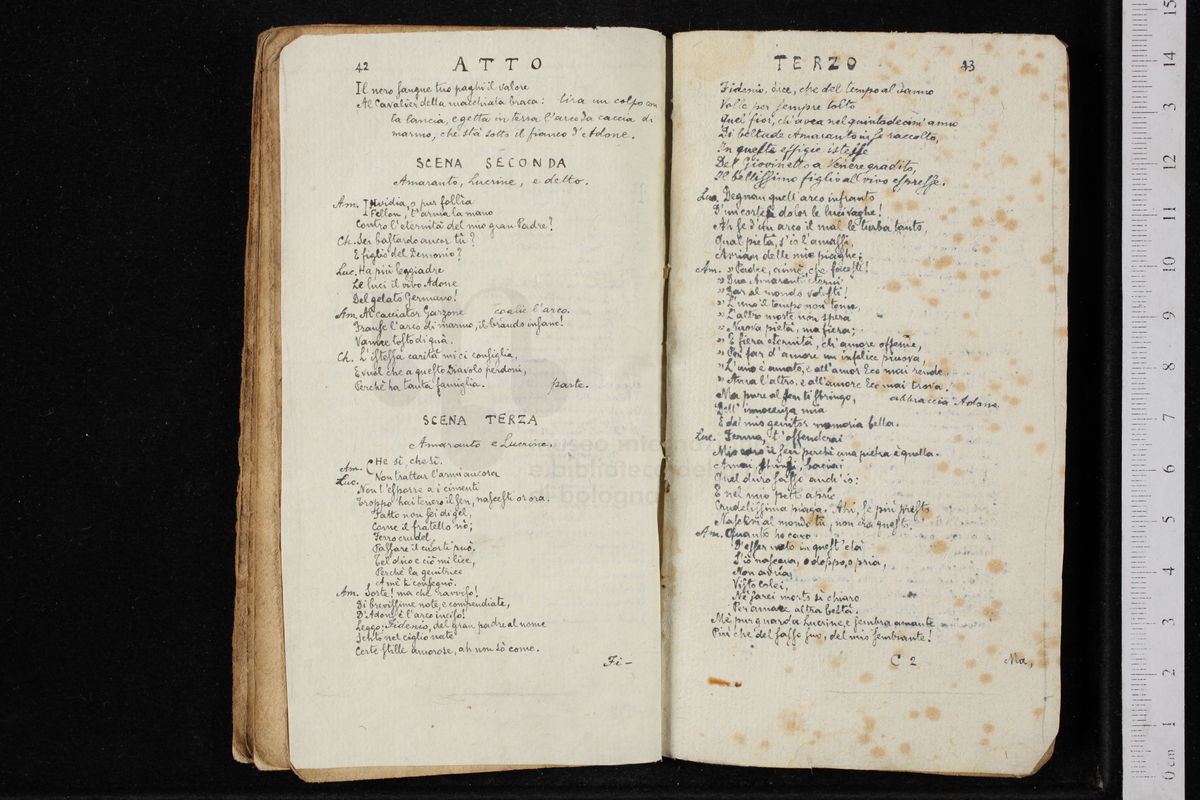 42 ATTO
Il nero sangue tuo paghi il valore
Al Cavalier della macchiata braca: tira un colpo con
la lancia, e getta in terra l'arco da caccia di
marmo, che stà sotto il fianco d'Adone.
SCENA SECONDA
Amaranto, Lucrine, e detto.
Am. Invidia, o pur follia
Fellon, t'arma la mano
Contro l'eternità del mio gran Padre?
Ch. Sei bastardo ancor tù?
E figlio del Demonio?
Luc. Ha più leggiadre
Le luci il vivo Adone
Del gelato Germano!
Am. Al cacciator Garzone coglie l'arco.
Franse l'arco di marmo, il brando insano!
Vanne tosto di quà.
Ch. L'istessa carità mi ci consiglia,
E vuol che a questo Diavolo perdoni,
Perchè ha tanta famiglia. parte.
SCENA TERZA
Amaranto e Lucrine.
Am. He sì, che sì.
Luc. Non trattar l'armi ancora
Non t'esporre a i cimenti
Troppo hai tenero il sen, nascesti or ora.
Fatto non sei di gel,
Come il fratello nò;
Ferro crudel,
Passare il cuor ti può.
Tel dico e ciò mi lice,
Perchè la genitrice
A mè ti consegnò.
Am. Sorte! ma che ravviso!
Di brevissime note, e compendiate,
D'Adone è l'arco inciso!
Leggo: Fidenio, del gran padre al nome
Sento nel ciglio nate
Certe stille amorose, ah non sò come.
Fi-
TERZO 43
Fidenio, dice, che del tempo al danno
Volle per sempre tolto
Quei fior, ch'avea nel quintodecim' anno
Di beltade Amaranto in se raccolto,
In questa effigie istesse
Del Giovinetto a Venere gradito,
Il bellissimo figlio al vivo espresse.
Luc. Degnan quell'arco infranto
D'un cortese dolor le luci vaghe!
Ah se d'un arco il mal le turba tanto,
Qual pietà, s'io l'amassi,
Avrian delle mie piaghe;
Am. » Padre, aimè, che facesti!
» Due Amaranti eterni
» Dar al mondo volesti!
» L'uno il tempo non teme,
» L'altro morte non spera
» Nuova pietà, ma fiera;
» È fiera eternità, ch'amore offende,
» Per far d'amore un infelice pruova,
» L'uno è amato, e all'amor Eco mai rende,
» Ama l'altro, e all'amore Eco mai trova.
Ma pure al sen ti stringo, abbraccia Adone
Dell'innocenza mia
E del mio genitor memoria bella.
Luc. Ferma, t'offenderai
Mio caro il sen perchè una pietra è quella.
Amai, strinsi, baciai
Quel duro sasso anch'io:
E nel mio pett' aprio
Crudelissima piaga. Ahi, se più presto
Nascevi al mondo tù, non era questo.
Am. Quanto ho caro
D'esser nato in quest'età
S'io nasceva, o doppo, o pria,
Non avria
Visto Lolei,
Nè sarei morto sì chiaro
Per amare altra beltà.
Mè pur guarda Lucrine, e sembra amante
Più che del sasso suo, del mio sembiante!
C 2 Ma,